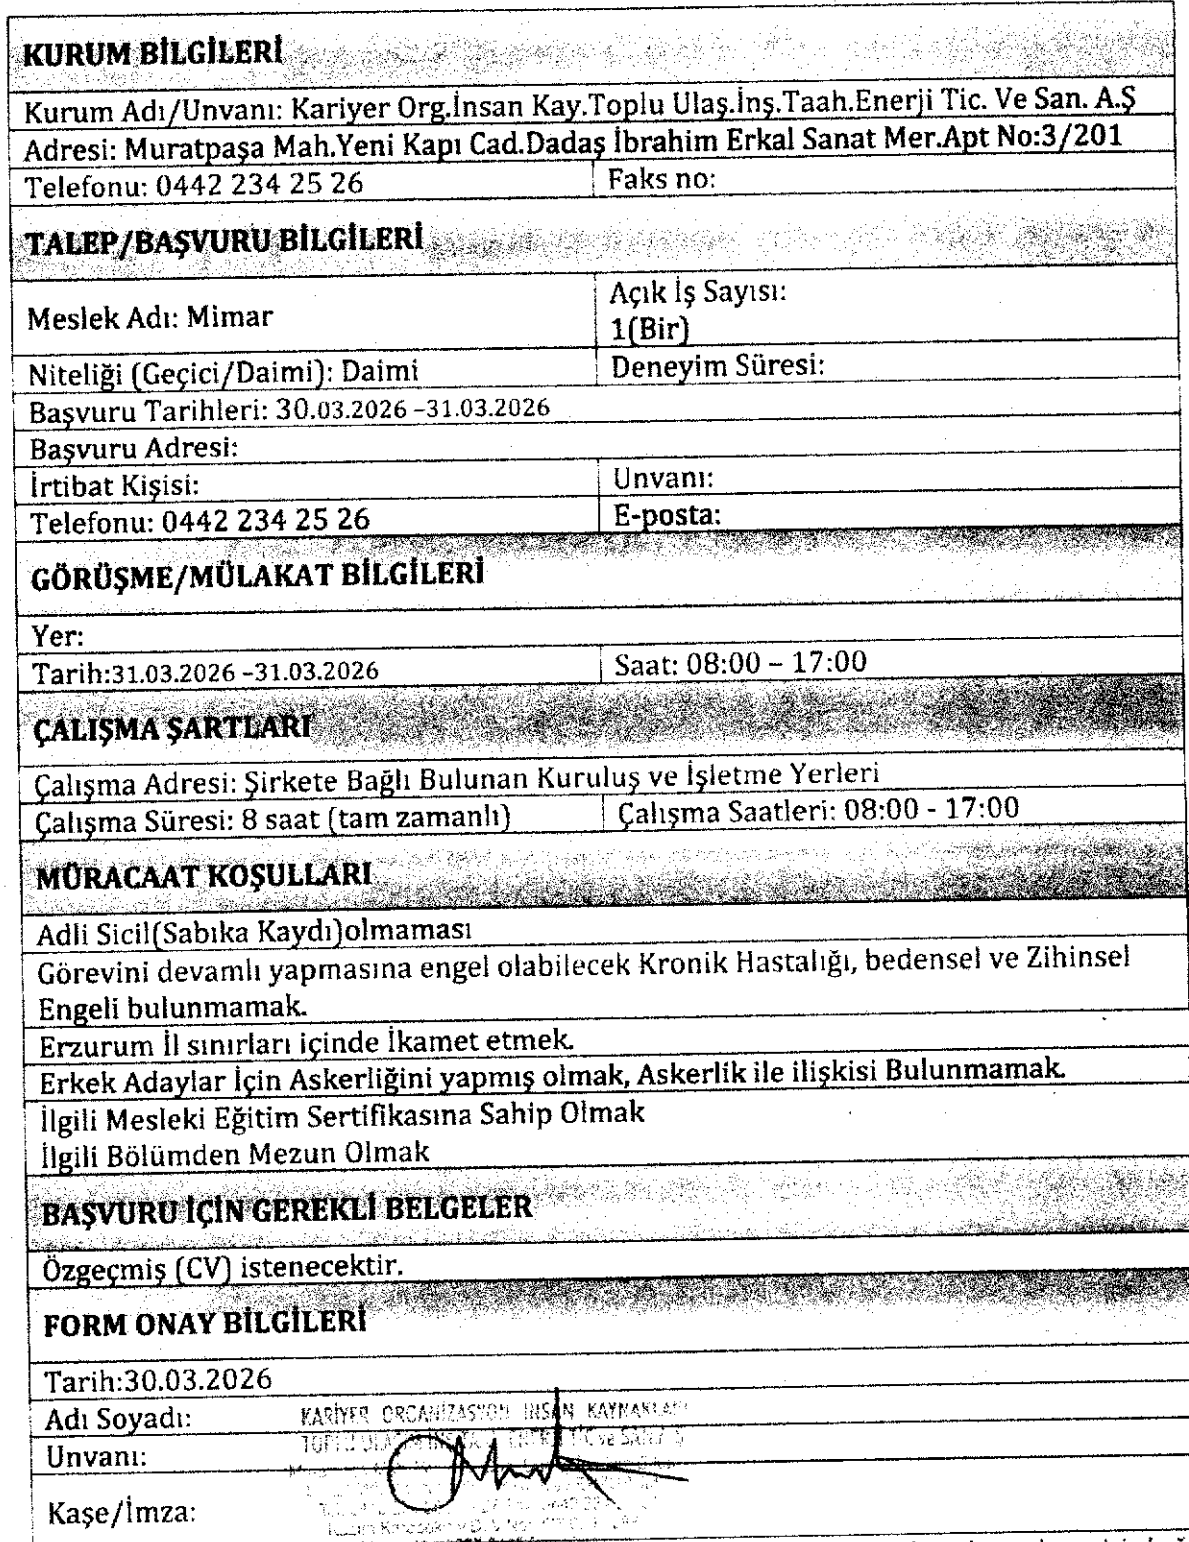 KURUM BİLGİLERİ
Kurum Adı/Unvanı: Kariyer Org.İnsan Kay.Toplu Ulaş.İnş.Taah.Enerji Tic. Ve San. A.Ş
Adresi: Muratpaşa Mah.Yeni Kapı Cad.Dadaş İbrahim Erkal Sanat Mer.Apt No:3/201
Telefonu: 0442 234 25 26
Faks no:
TALEP/BAŞVURU BİLGİLERİ
Meslek Adı: Mimar
Açık İş Sayısı:
1(Bir)
Niteliği (Geçici/Daimi): Daimi
Deneyim Süresi:
Başvuru Tarihleri: 30.03.2026 –31.03.2026
Başvuru Adresi:
İrtibat Kişisi:
Unvanı:
Telefonu: 0442 234 25 26
E-posta:
GÖRÜŞME/MÜLAKAT BİLGİLERİ
Yer:
Tarih:31.03.2026 –31.03.2026
Saat: 08:00 – 17:00
ÇALIŞMA ŞARTLARI
Çalışma Adresi: Şirkete Bağlı Bulunan Kuruluş ve İşletme Yerleri
Çalışma Süresi: 8 saat (tam zamanlı)
Çalışma Saatleri: 08:00 - 17:00
MÜRACAAT KOŞULLARI
Adli Sicil(Sabıka Kaydı)olmaması
Görevini devamlı yapmasına engel olabilecek Kronik Hastalığı, bedensel ve Zihinsel
Engeli bulunmamak.
Erzurum İl sınırları içinde İkamet etmek.
Erkek Adaylar İçin Askerliğini yapmış olmak, Askerlik ile ilişkisi Bulunmamak.
İlgili Mesleki Eğitim Sertifikasına Sahip Olmak
İlgili Bölümden Mezun Olmak
BAŞVURU İÇİN GEREKLİ BELGELER
Özgeçmiş (CV) istenecektir.
FORM ONAY BİLGİLERİ
Tarih:30.03.2026
Adı Soyadı:
KARİYER ORGANİZASYON İNSAN KAYNAKLARI
Unvanı:
Kaşe/İmza: